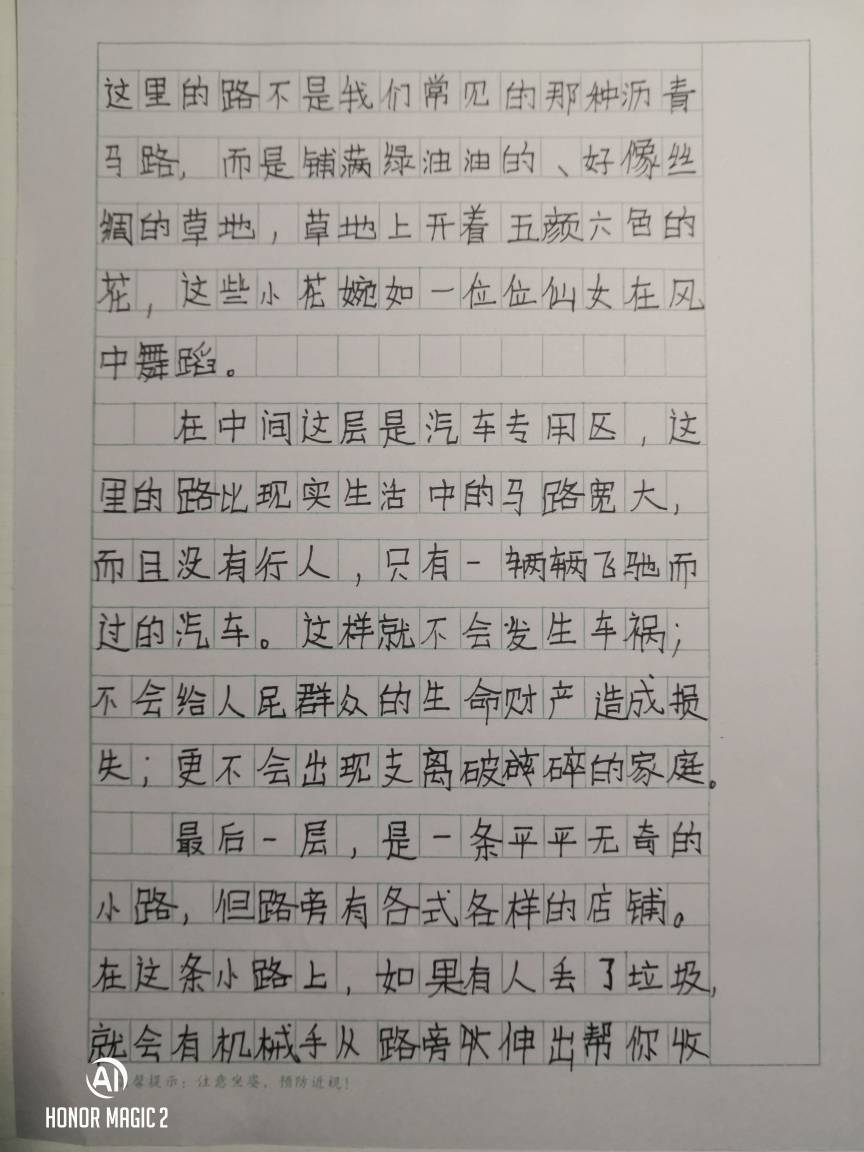 这里的路不是我们常见的那种沥青
马路，而是铺满绿油油的、好像丝
绸的草地，草地上开着五颜六色的
花，这些小花婉如一位位仙女在风
中舞蹈。
在中间这层是汽车专用区，这
里的路比现实生活中的马路宽大，
而且没有行人，只有一辆辆飞驰而
过的汽车。这样就不会发生车祸；
不会给人民群众的生命财产造成损
失；更不会出现支离破碎碎的家庭。
最后一层，是一条平平无奇的
小路，但路旁有各式各样的店铺。
在这条小路上，如果有人丢了垃圾，
就会有机械手从路旁伸出帮你收
馨提示：注意坐姿，预防近视！
AI
HONOR MAGIC 2